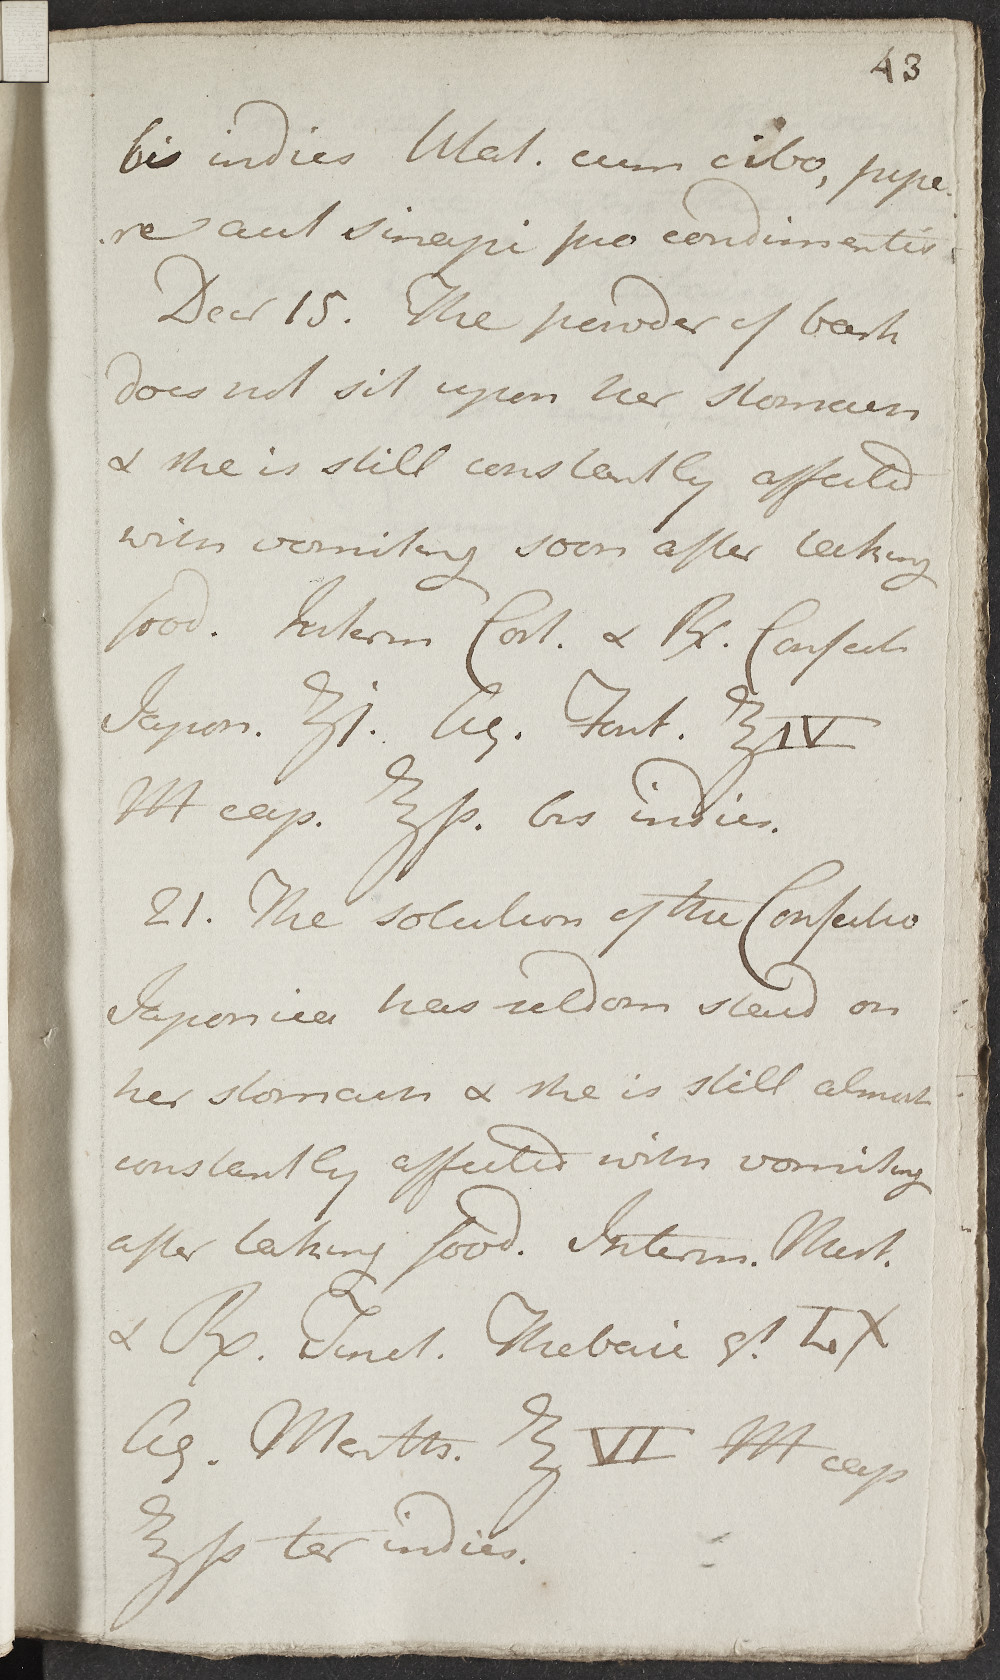 43
bis indies Utat. cum cibo, pipe-
-re aut sinapi pro condimentis
Decr 15. The powder of bark
does not sit upon her stomach
& she is still constantly affected
with vomiting soon after taking
food. Interm Cort. & ℞. Confect
Japon. ℥j. Aq. Font. ℥IV
M cap. ℥ß. bis indies.
21. The solution of the Confectio
Japonica has seldom staid on
her stomach & she is still almost
constantly affected with vomiting
after taking food. Interm. Med.
& ℞. Tinct. Thebaic gt. LX
Aq. Menth. ℥VII M cap
℥ß ter indies.